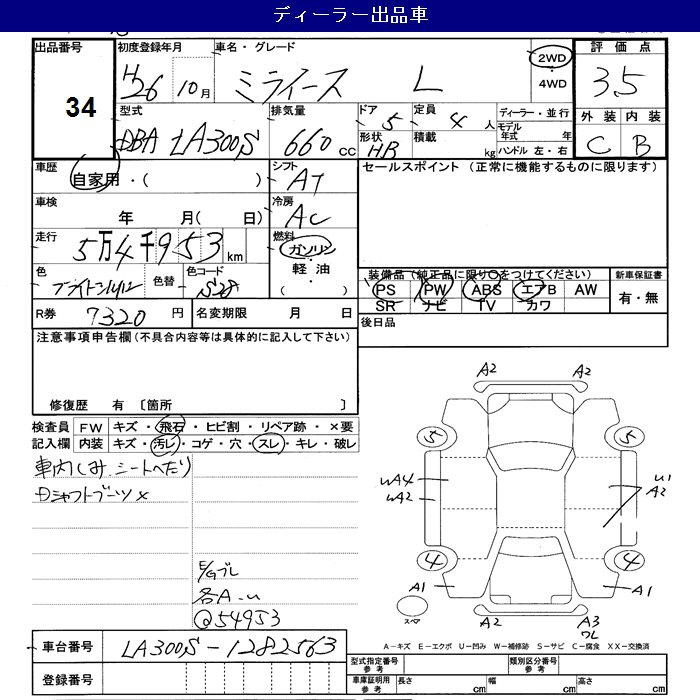 ディーラー出品車
出品番号
34
初度登録年月
車名・グレード
H26 10月
ミライース L
2WD
4WD
評価点
3.5
外装 内装
C B
型式
DBA LA300S
排気量
660 cc
ドア
5
形状
HB
定員
4 人
積載
kg
ディーラー・並行
モデル年式 年
ハンドル 左・右
車歴
自家用・( )
シフト
AT
セールスポイント (正常に機能するものに限ります)
車検
年 月( 日)
冷房
AC
走行
5万4千953 km
燃料
ガソリン
軽油
( )
色
ブライトシルバー
色替
色コード
S28
装備品(純正品に限り○をつけてください)
PS PW ABS エアB AW
SR ナビ TV カワ
新車保証書
有・無
R券 7320 円
名変期限 月 日
後日品
注意事項申告欄(不具合内容等は具体的に記入して下さい)
修復歴 有 〔箇所 〕
検査員 FW キズ・飛石・ヒビ割・リペア跡・×要
記入欄 内装 キズ・汚レ・コゲ・穴・スレ・キレ・破レ
車内しみ、シートへたり
Dシャフトブーツ×
E/Gブレ
各A.u
@54953
A2 A2
5 5
wA4
wA2
u1
A2
4 4
A1 A1
スペア
A2 A3
ワレ
A-キズ E-エクボ U-凹み W-補修跡 S-サビ C-腐食 XX-交換済
車台番号 LA300S-1282563
登録番号
型式指定番号
参考
類別区分番号
参考
車庫証明用
参考
長さ cm
幅 cm
高さ cm